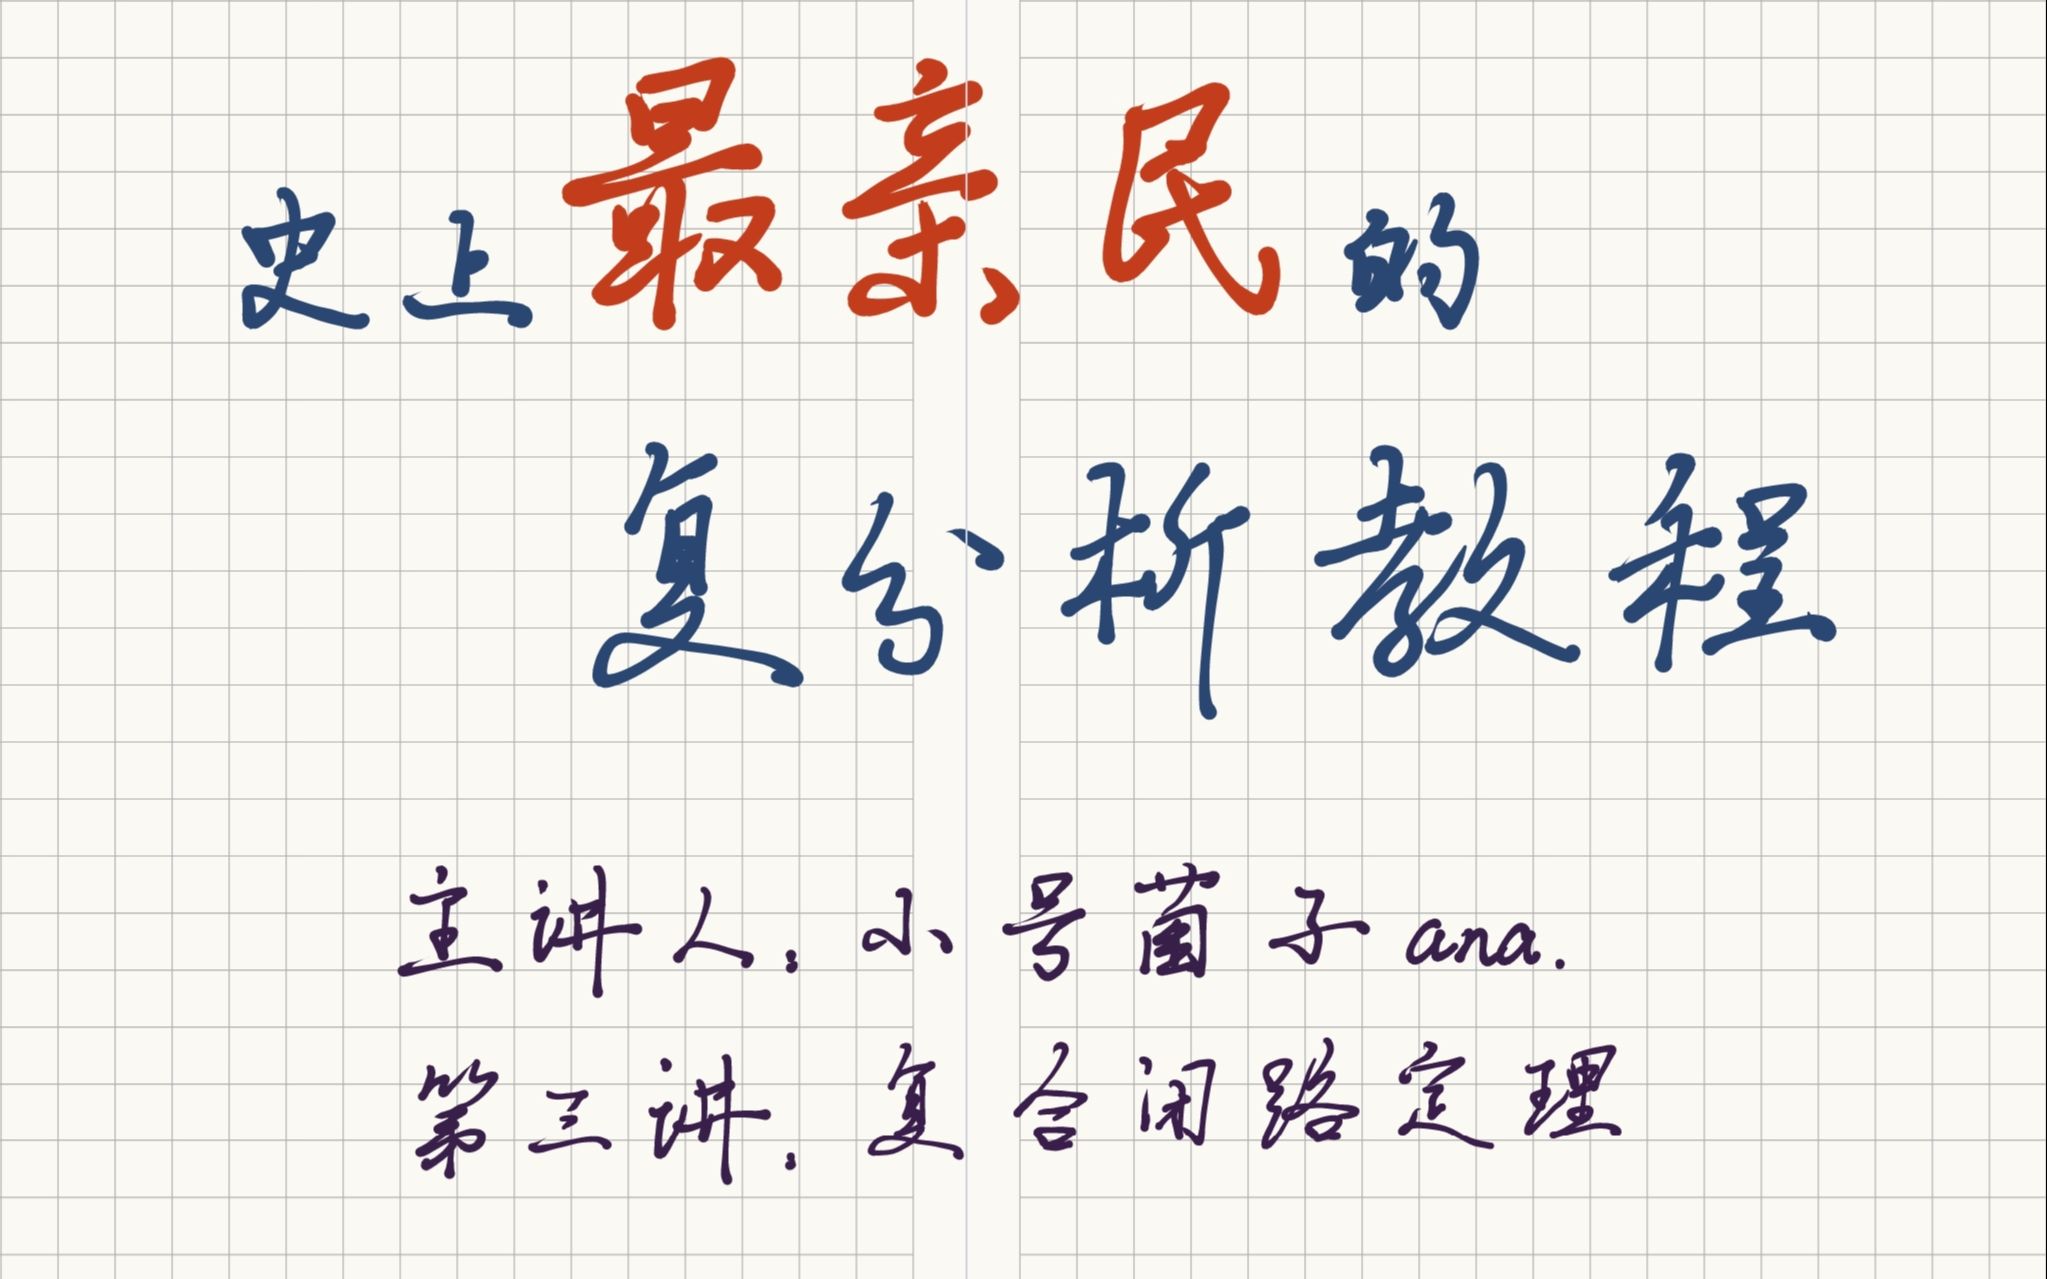 史上最亲民的
复分析教程
主讲人：小号菌子ana.
第三讲：复合闭路定理